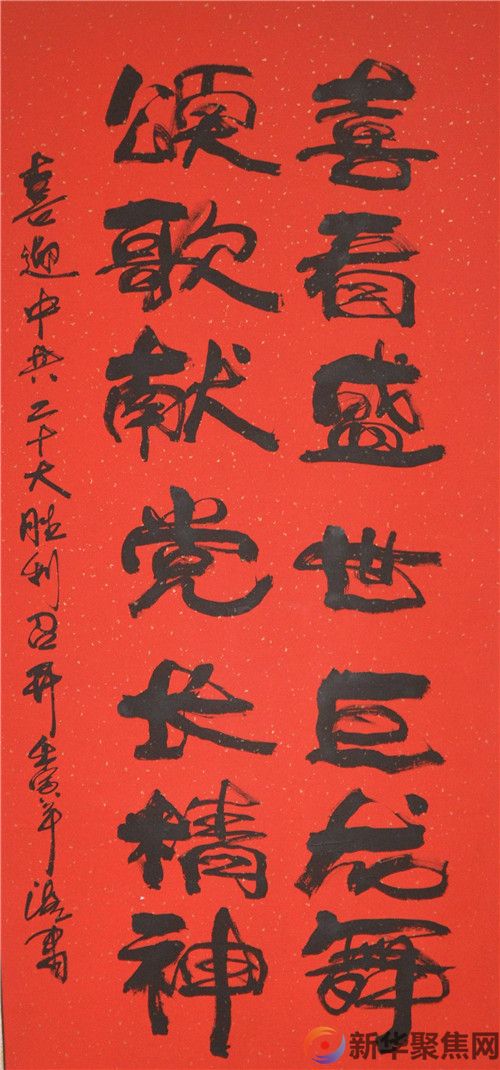 喜看盛世巨龙舞
颂歌献党长精神
喜迎中共二十大胜利召开壬寅年
新华聚焦网